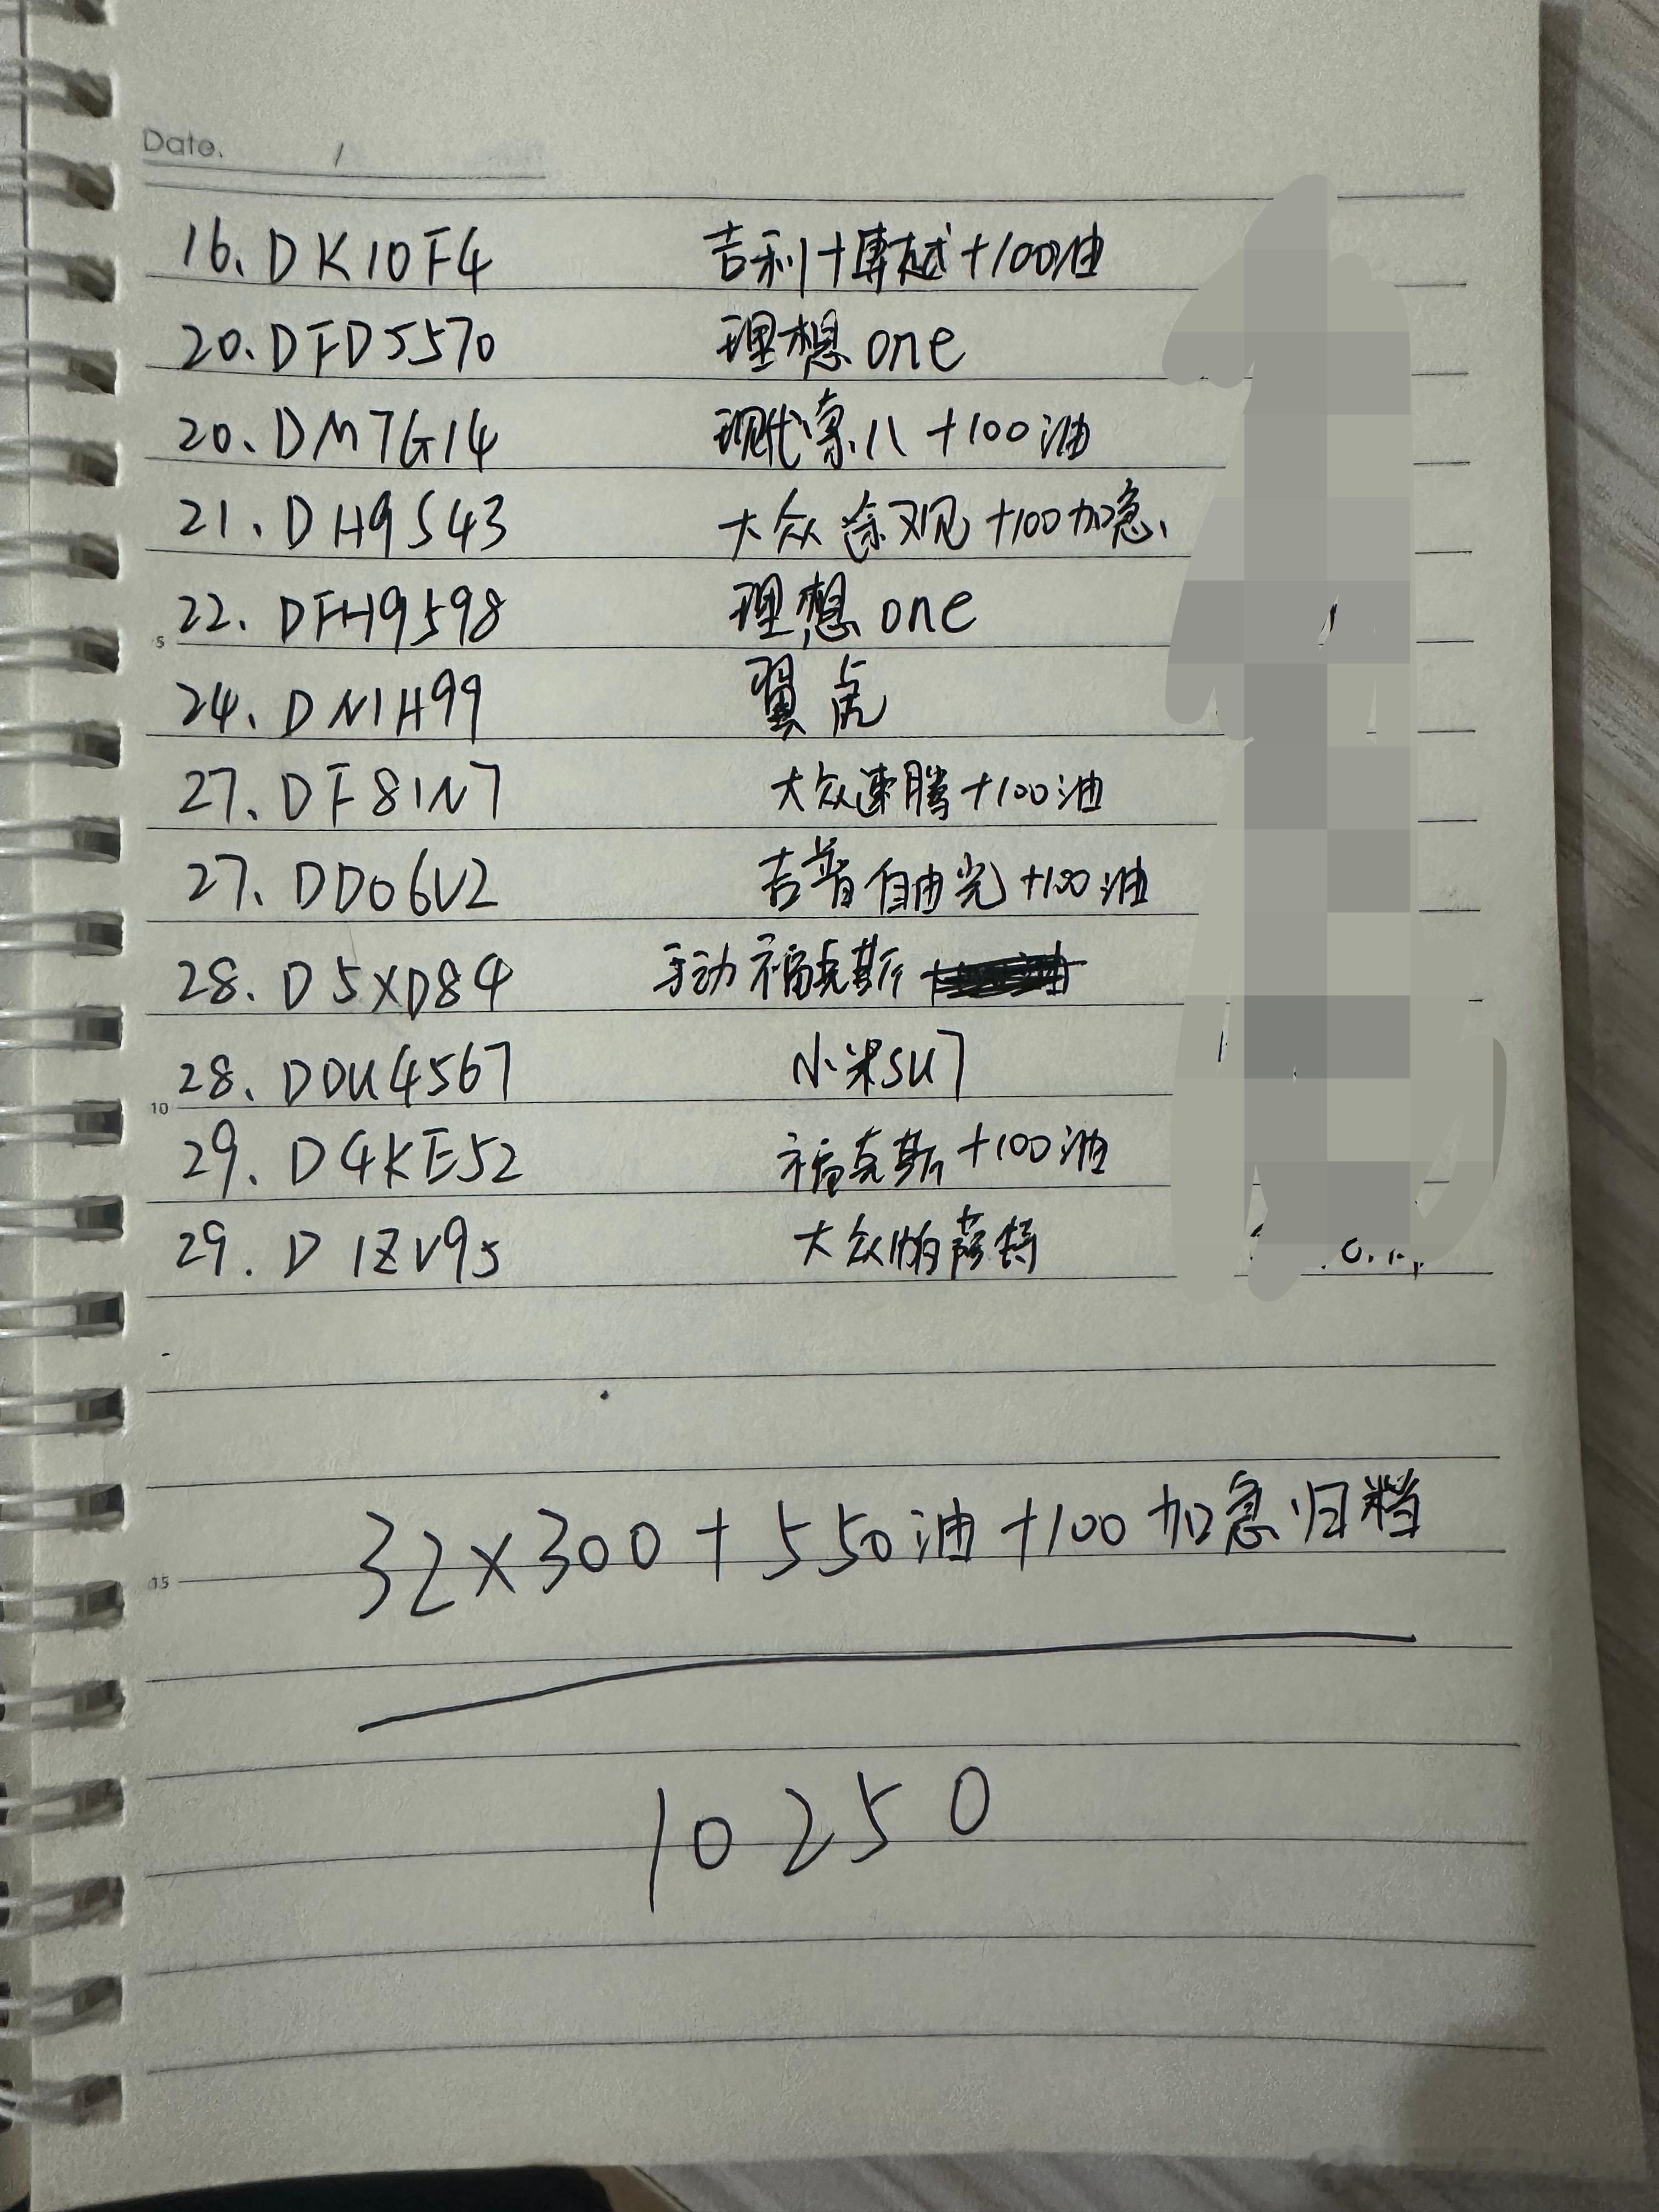 Date. /
16. DK10F4 吉利十博越+100油
20. DFD5570 理想one
20. DM7G14 现代 +100油
21. DH9S43 大众途观+100加急
5 22. DFH9598 理想one
24. DN1H99 翼虎
27. DF81N7 大众速腾+100油
27. DD06V2 吉普自由光+100油
28. D5XD84 手动福克斯
28. DDU4567 小米SU7
10
29. D4KE52 福克斯+100油
29. D1ZV95 大众帕萨特
32×300+550油+100加急归档
15
10250